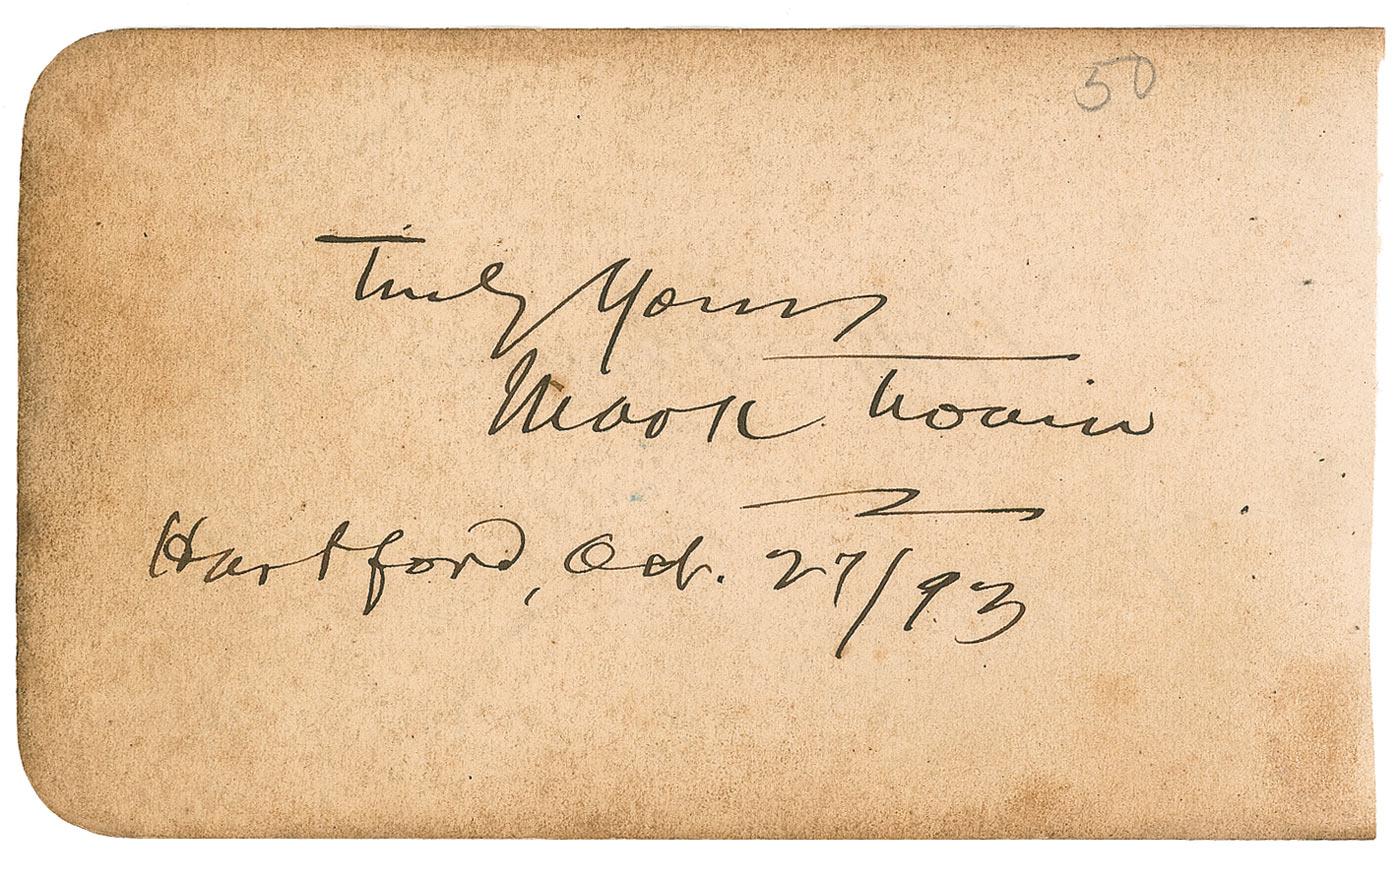 50
Truly Yours
Mark Twain
Hartford, Oct. 27/93